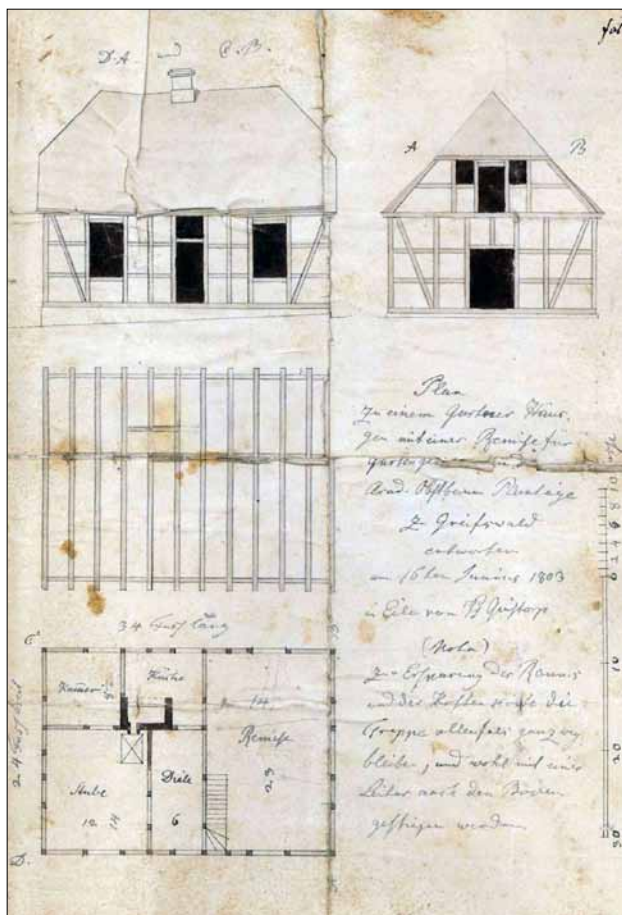 fol
D. A. und C. B.
A
B
Plan
zu einem Gartner Häus-
gen mit einer Remise für
Gartenge
Acad. Obstbaum Plantage
Z. Greifswald
entworfen
am 16ten Junius 1803
in Eile vom
34 Fuss lang
(Nota)
Zur Ersparung des Raums
und der Kosten die
Treppe allenfals ganz weg
bleiben, und wohl mit einer
Leiter nach den Boden
gestiegen werden
C.
B.
24 Fuss breit
Kammer
Küche
14
Remise
23
Stube
12 14
Diele
6
D.
10 8 6 4 2 0
10
20
30